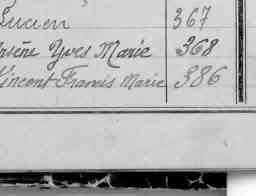 Lucien 367
Arsène Yves Marie 368
Vincent Francis Marie 386